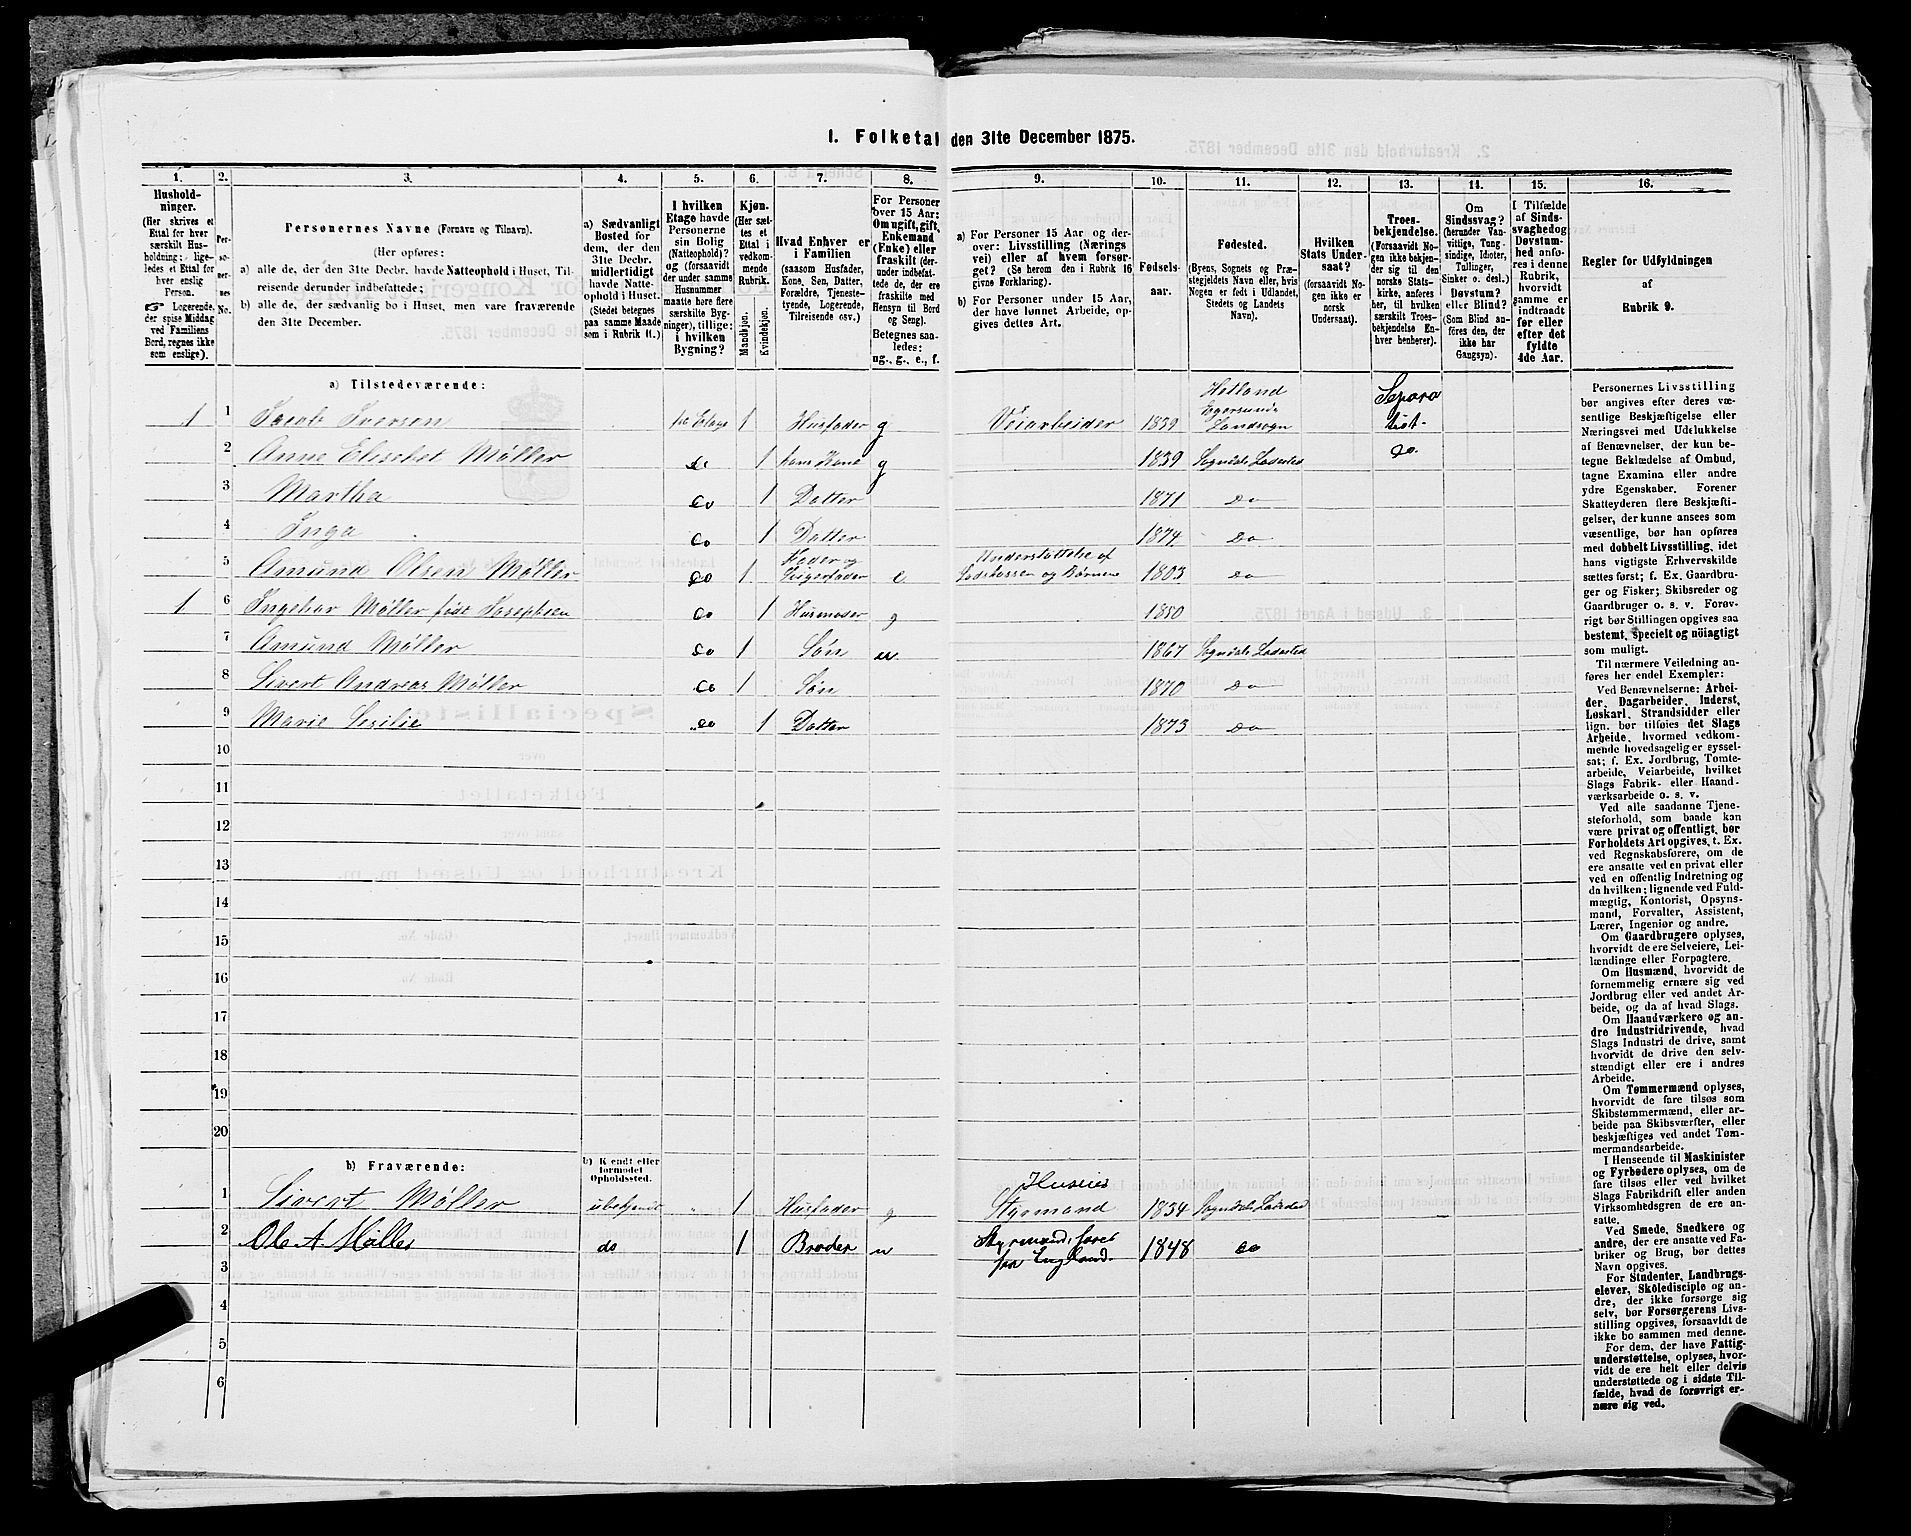 1. Folketal den 31te December 1875.
1. 2. 3. 4. 5. 6. 7. 8. 9. 10. 11. 12. 13. 14. 15. 16.
Hushold-
ninger.
(Her skrives et
Ettal for hver
særskilt Hus-
holdning; lige-
ledes et Ettal for
hver enslig
Person.
☞ Logerende,
der spise Middag
ved Familiens
Bord, regnes ikke
som enslige).
Per-
so-
ner-
nes
No.
Personernes Navne (Fornavn og Tilnavn).
(Her opføres:
a) alle de, der den 31te Decbr. havde Natteophold i Huset, Til-
reisende derunder indbefattede;
b) alle de, der sædvanlig bo i Huset, men vare fraværende
den 31te December.
a) Sædvanligt
Bosted for
dem, der den
31te Decbr.
midlertidigt
havde Natte-
ophold i Huset.
(Stedet betegnes
paa samme Maade
som i Rubrik 11.)
I hvilken
Etage havde
Personerne
sin Bolig
(Natteophold)?
og (forsaavidt
der under samme
Husnummer
maatte høre flere
særskilte Byg-
ninger), tillige:
i hvilken
Bygning?
Kjøn.
(Her sæt-
tes et
Ettal i
vedkom-
mende
Rubrik.
Mandkjøn.
Kvindekjøn.
Hvad Enhver er
i Familien
(saasom Husfader,
Kone, Søn, Datter,
Forældre, Tjeneste-
tyende, Logerende,
Tilreisende osv.)
For Personer
over 15 Aar:
Om ugift, gift,
Enkemand
(Enke) eller
fraskilt (der-
under indbefat-
tede de, der ere
fraskilte med
Hensyn til Bord
og Seng).
Betegnes saa-
ledes:
ug., g., e., f.
a) For Personer 15 Aar og der-
over: Livsstilling (Nærings
vei) eller af hvem forsør-
get? (Se herom den i Rubrik 16
givne Forklaring).
b) For Personer under 15 Aar,
der have lønnet Arbeide, op-
gives dettes Art.
Fødsels-
aar.
Fødested.
(Byens, Sognets og Præ-
stegjeldets Navn eller, hvis
Nogen er født i Udlandet,
Stedets og Landets
Navn).
Hvilken
Stats Under-
saat?
(forsaavidt No-
gen ikke er
norsk
Undersaat).
Troes-
bekjendelse.
(Forsaavidt No-
gen ikke bekjen-
der sig til den
norske Stats-
kirke, anføres
her, til hvilken
særskilt Troes-
bekjendelse En-
hver henhører).
Om
Sindssvag?
(herunder Van-
vittige, Tung-
sindige, Idioter,
Tullinger,
Sinker o. desl.)
Døvstum?
eller Blind?
(Som Blind an-
føres den, der
ikke har
Gangsyn).
I Tilfælde
af Sinds-
svaghed og
Døvstum-
hed anfø-
res i denne
Rubrik,
hvorvidt
samme er
indtraadt
før eller
efter det
fyldte
4de Aar.
Regler for Udfyldningen
af
Rubrik 9.
a) Tilstedeværende:
1 1 Jacob Iversen 1te Etage 1 Husfader g Veiarbeider 1839 Hetland Egersunds Landsogn Separatist.
2 Anne Elisebet Møller do 1 hans Kone g 1839 Sogndals Ladested do.
3 Martha do 1 Datter 1871 do
4 Inga do 1 Datter 1874 do
5 Amund Olsen Møller do 1 Fader og Svigerfader e Understøttelse af Børnene 1803 do
1 6 Ingebor Møller født Josephsen do 1 Husmoder g 1850
7 Amund Møller do 1 Søn 1867 Sogndals Ladested
8 Sivert Andreas Møller do 1 Søn 1870 do
9 Marie Sesilie do 1 Datter 1873 do
10
11
12
13
14
15
16
17
18
19
20
b) Fraværende:
b) Kjendt eller
formodet
Opholdssted.
1 Sivert Møller ubekjendt " 1 Husfader g Styrmand 1834 Sogndals Ladested
2 Ole A. Møller do 1 Broder u Styrmand, farer paa England. 1848 do
3
4
5
6
Personernes Livsstilling
bør angives efter deres væ-
sentlige Beskjæftigelse eller
Næringsvei med Udelukkelse
af Benævnelser, der kun be-
tegne Beklædelse af Ombud,
tagne Examina eller andre
ydre Egenskaber. Forener
Skatteyderen flere Beskjæfti-
gelser, der kunne ansees som
væsentlige, bør han opføres
med dobbelt Livsstilling, idet
hans vigtigste Erhvervskilde
sættes først; f. Ex. Gaardbru-
ger og Fisker; Skibsreder og
Gaardbruger o. s. v. Forøv-
rigt bør Stillingen opgives saa
bestemt, specielt og nøiagtigt
som muligt.
Til nærmere Veiledning an-
føres her endel Exempler:
Ved Benævnelserne: Arbei-
der, Dagarbeider, Inderst,
Løskarl, Strandsidder eller
lign. bør tilføies det Slags
Arbeide, hvormed vedkom-
mende hovedsagelig er syssel-
sat; f. Ex. Jordbrug, Tomte-
arbeide, Veiarbeide, hvilket
Slags Fabrik- eller Haand-
værksarbeide o. s. v.
Ved alle saadanne Tjene-
steforhold, som baade kan
være privat og offentligt, bør
Forholdets Art opgives, t. Ex.
ved Regnskabsførere, om de
ere ansatte ved en privat eller
ved en offentlig Indretning og
da hvilken; lignende ved Fuld-
mægtig, Kontorist, Opsyns-
mand, Forvalter, Assistent,
Lærer, Ingeniør og andre.
Om Gaardbrugere oplyses,
hvorvidt de ere Selveiere, Lei-
lændinge eller Forpagtere.
Om Husmænd, hvorvidt de
fornemmelig ernære sig ved
Jordbrug eller ved andet Ar-
beide, og da af hvad Slags.
Om Haandværkere og an-
dre Industridrivende, hvad
Slags Industri de drive, samt
hvorvidt de drive den selv-
stændigt eller ere i andres
Arbeide.
Om Tømmermænd oplyses,
hvorvidt de fare tilsøs som
Skibstømmermænd, eller ar-
beide paa Skibsværfter, eller
beskjæftiges ved andet Tøm-
mermandsarbeide.
I Henseende til Maskinister
og Fyrbødere oplyses, om de
fare tilsøs eller ved hvilket
Slags Fabrikdrift eller anden
Virksomhedsgren de ere an-
satte.
Ved Smede, Snedkere og
andre, der ere ansatte ved Fa-
briker og Brug, bør dettes
Navn opgives.
For Studenter, Landbrugs-
elever, Skoledisciple og an-
dre, der ikke forsørge sig
selv, bør Forsørgerens Livs-
stilling opgives, forsaavidt de
ikke bo sammen med denne.
For dem, der have Fattig-
understøttelse, oplyses, hvor-
vidt de ere helt eller delvis
understøttede og i sidste Til-
fælde, hvad de forøvrigt er-
nære sig ved.